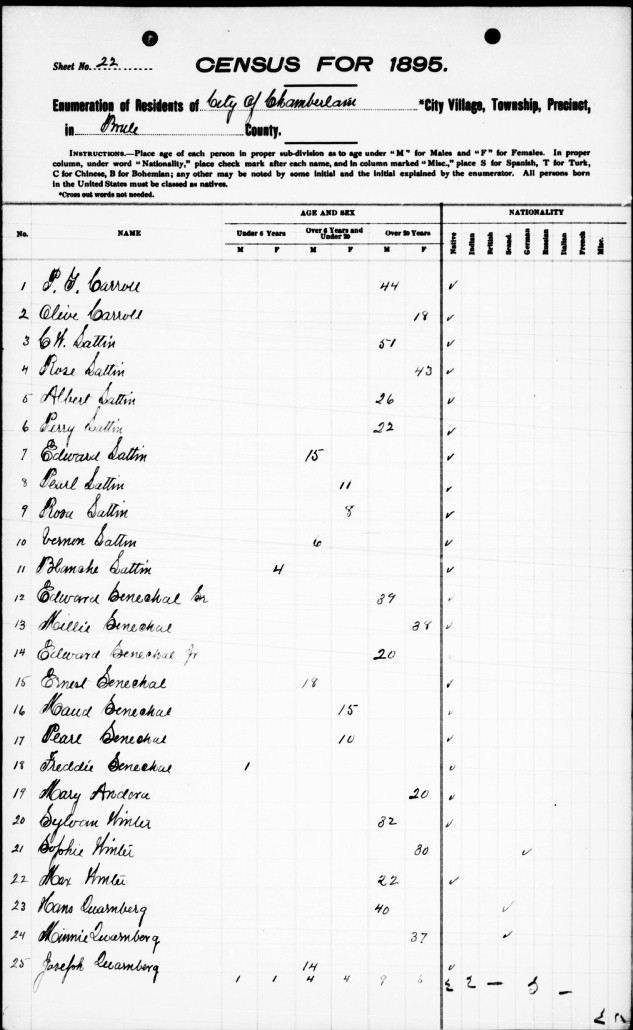 Sheet No. 22
CENSUS FOR 1895.
Enumeration of Residents of City of Chamberlain *City Village, Township, Precinct,
in Brule County.
INSTRUCTIONS.—Place age of each person in proper sub-division as to age under "M" for Males and "F" for Females. In proper
column, under word "Nationality," place check mark after each name, and in column marked "Misc.," place S for Spanish, T for Turk,
C for Chinese, B for Bohemian; any other may be noted by some initial and the initial explained by the enumerator. All persons born
in the United States must be classed as natives.
*Cross out words not needed.
AGE AND SEX NATIONALITY
No. NAME Under 6 Years Over 6 Years and Under 20 Over 20 Years Native Indian British Scand. German Russian Italian French Misc.
M F M F M F
1 P. F. Carroll 44 ✓
2 Olive Carroll 18 ✓
3 C W. Sattin 51 ✓
4 Rose Sattin 43 ✓
5 Albert Sattin 26 ✓
6 Perry Sattin 22 ✓
7 Edward Sattin 15 ✓
8 Pearl Sattin 11 ✓
9 Rosa Sattin 8 ✓
10 Vernon Sattin 6 ✓
11 Blanche Sattin 4 ✓
12 Edward Senechal Sr 39 ✓
13 Millie Senechal 38 ✓
14 Edward Senechal Jr 20
15 Ernest Senechal 18 ✓
16 Maud Senechal 15 ✓
17 Pearl Senechal 10 ✓
18 Freddie Senechal 1 ✓
19 Mary Andora 20 ✓
20 Sylvan Winter 32 ✓
21 Sophie Winter 30 ✓
22 Max Winter 22 ✓
23 Hans Quarnberg 40 ✓
24 Minnie Quarnberg 37 ✓
25 Joseph Quarnberg 14 ✓
1 1 4 4 9 6